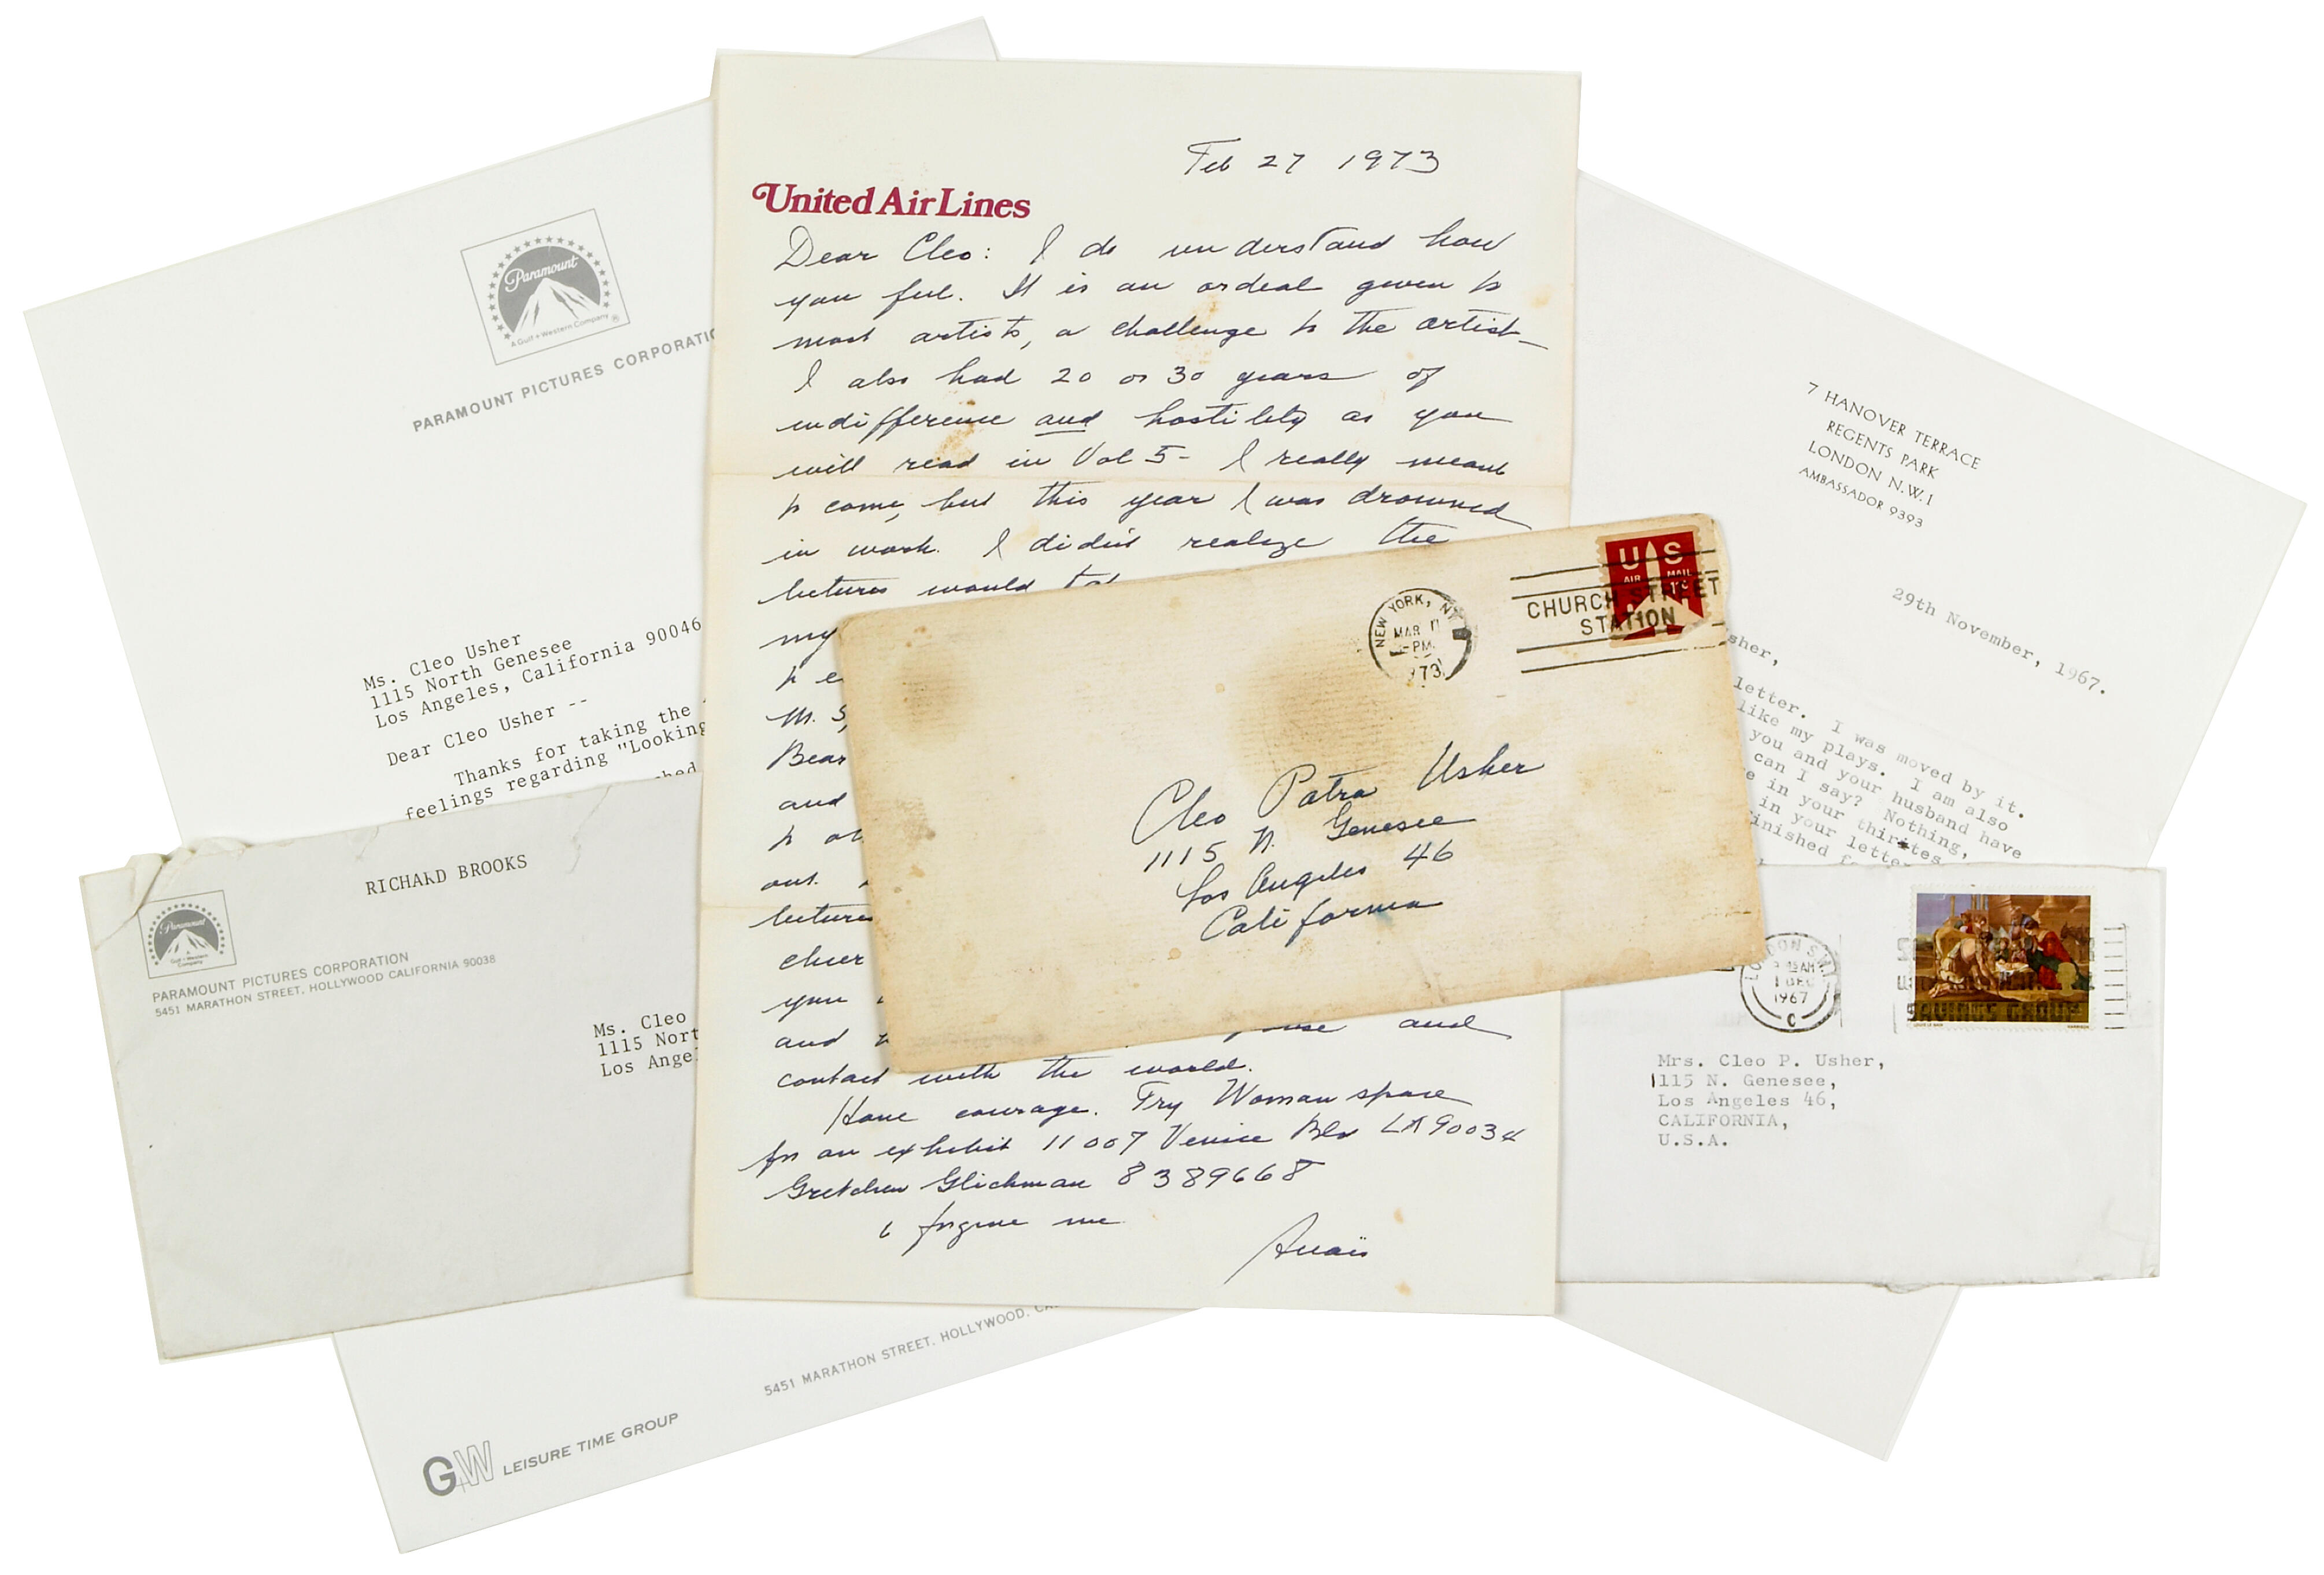 Paramount
A Gulf + Western Company
PARAMOUNT PICTURES CORPORATIO
Ms. Cleo Usher
1115 North Genesee
Los Angeles, California 90046
Dear Cleo Usher --
Thanks for taking the
feelings regarding "Looking
RICHARD BROOKS
Paramount
A Gulf + Western
Company
PARAMOUNT PICTURES CORPORATION
5451 MARATHON STREET, HOLLYWOOD CALIFORNIA 90038
Ms. Cleo
1115 Nort
Los Ange
G+W LEISURE TIME GROUP
5451 MARATHON STREET, HOLLYWOOD, CA
Feb 27 1973
United Air Lines
Dear Cleo: I do understand how
you feel. It is an ordeal given to
most artists, a challenge to the artist—
I also had 20 or 30 years of
indifference and hostility as you
will read in Vol 5- I really meant
to come, but this year I was drowned
in work. I didn't realize the
lectures would
my
to e
M. S
Bear
and
to
out.
lectures
cheer
you
and
and
contact with the world.
Have courage. Try Woman space
for an exhibit 11007 Venice Blv LA 90034
Gretchen Glickman 8389668
forgive me
Anaïs
NEW YORK, NY
MAR
PM
1973
CHURCH STREET
STATION
US
AIR MAIL
Cleo Patra Usher
1115 N. Genesee
Los Angeles 46
California
7 HANOVER TERRACE
REGENTS PARK
LONDON N.W.1
AMBASSADOR 9393
29th November, 1967.
sher,
letter. I was moved by it.
like my plays. I am also
you and your husband have
can I say? Nothing,
e in your thirites
in your letter
inished
LONDON S.W.
AM
1 DEC
1967
C
Mrs. Cleo P. Usher,
1115 N. Genesee,
Los Angeles 46,
CALIFORNIA,
U.S.A.